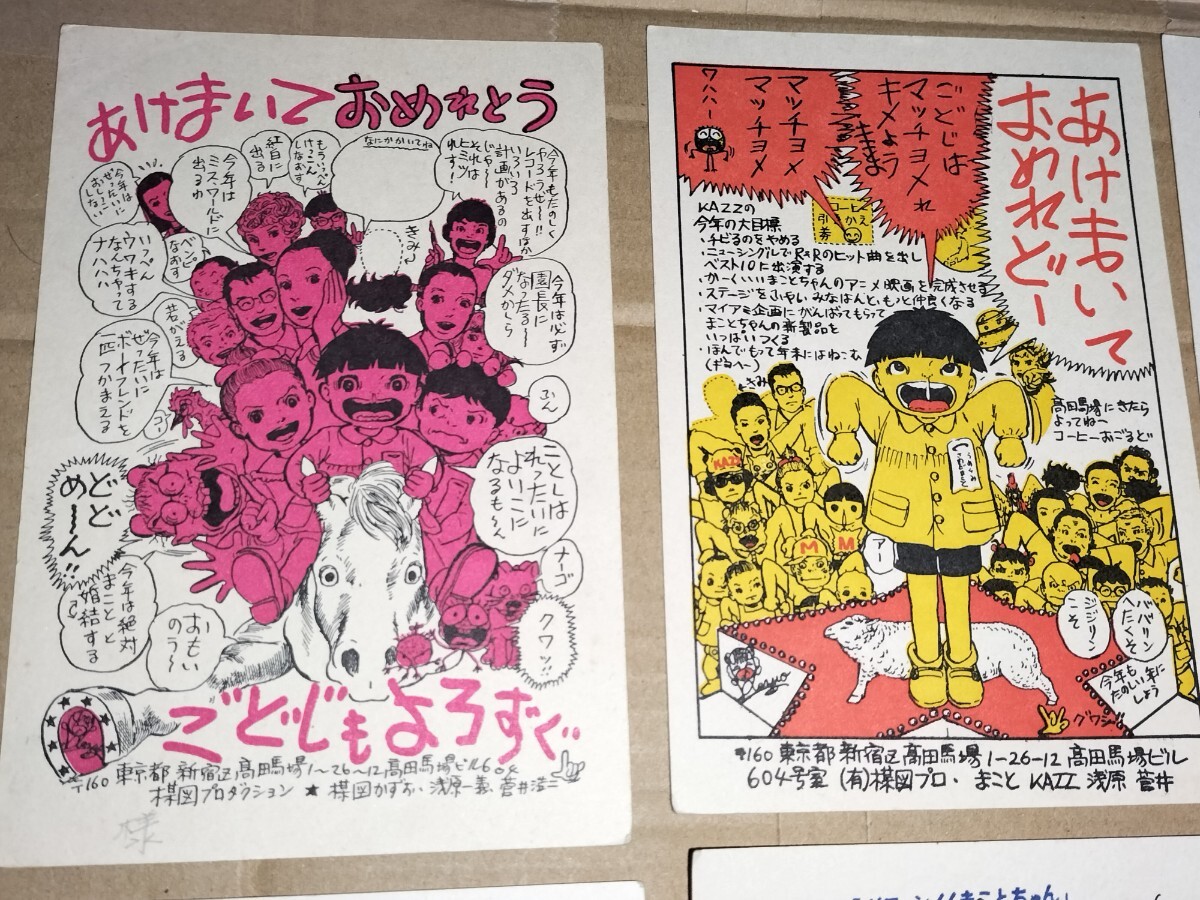 あけまいて おめれとう
今年はぜったいにおしっこしない
今年は
ミス・ワールドに
出るゆ
紅白に
出る
もういっぺん
けっこん
しなおす
なにかかいてね
それは
ヒミツ
れーす!
今年もたのしく
やろうぜ〜!!
レコードを出すほか
いろいろ
計画があるの
じゃ〜
きみ→
いっぺん
ウワキする
なんちゃって
ナハハハ
若がえる
今年は必ず
園長に
なったる〜
ダメかしら
今年は
ぜったいに
ボーイフレンドを
一匹つかまえる
コー
ふん
ことしは
れったいに
よいこに
なるも〜ん
どど
め〜ん!!
ナーゴ
クワッ!!
今年は絶対
まことと
婚結する
おもい
のう〜
ごどじも よろすぐ
〒160 東京都 新宿区高田馬場1〜26〜12 高田馬場ビル604
楳図プロダクション ★ 楳図かずお、浅原一義、菅井浩二
様
あけまいて
おめれどー
ごどじは
マッチョメれ
キメよう
マッチョメ
マッチョメ
ワハハー
コーヒー
引きかえ
券
KAZZの
今年の大目標
・チビるのをやめる
・ニューシングルでR&Rのヒット曲を出し
ベスト10に出演する
・かーくいいまことちゃんのアニメ映画を完成させる
・ステージをふやし みなはんともっと仲良くなる
・マイアミ企画にがんばってもらって
まことちゃんの新製品を
いっぱいつくる
・ほんでもって年末にはねこむ
(ギョヘ〜)
きみ
高田馬場にきたら
よってね〜
コーヒーおごるど
KAZZ
M
M
アー
ジジリン
こそ
ババリン
へたくそ
今年も
たのしい年に
しよう
グワシ!!
〒160 東京都 新宿区高田馬場1-26-12 高田馬場ビル
604号室 (有)楳図プロ・まこと KAZZ 浅原 菅井